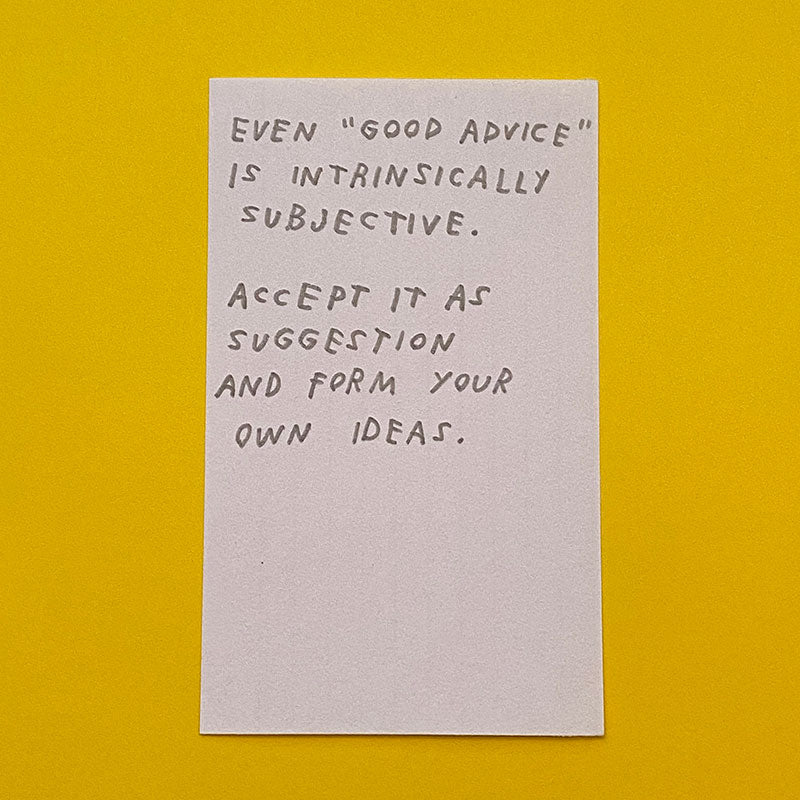 EVEN "GOOD ADVICE"
IS INTRINSICALLY
SUBJECTIVE.
ACCEPT IT AS
SUGGESTION
AND FORM YOUR
OWN IDEAS.